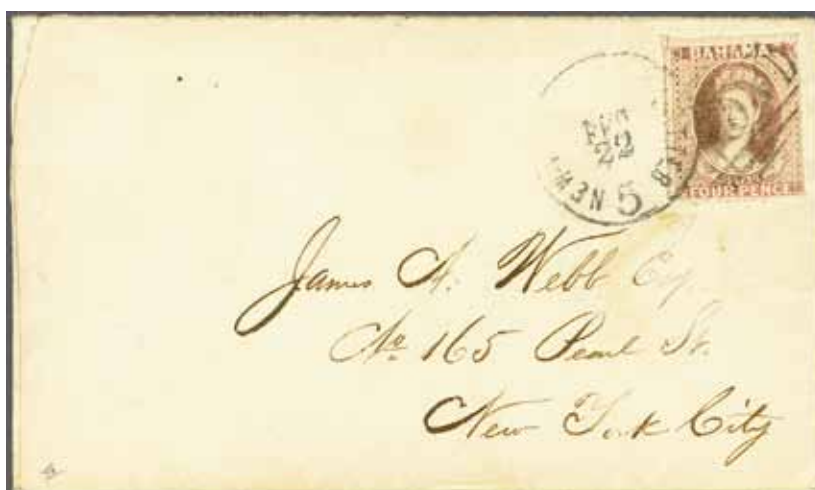 BAHAMAS
FOUR PENCE
FEB
22
5
NEW
James A. Webb Esq.
No 165 Pearl St.
New York City